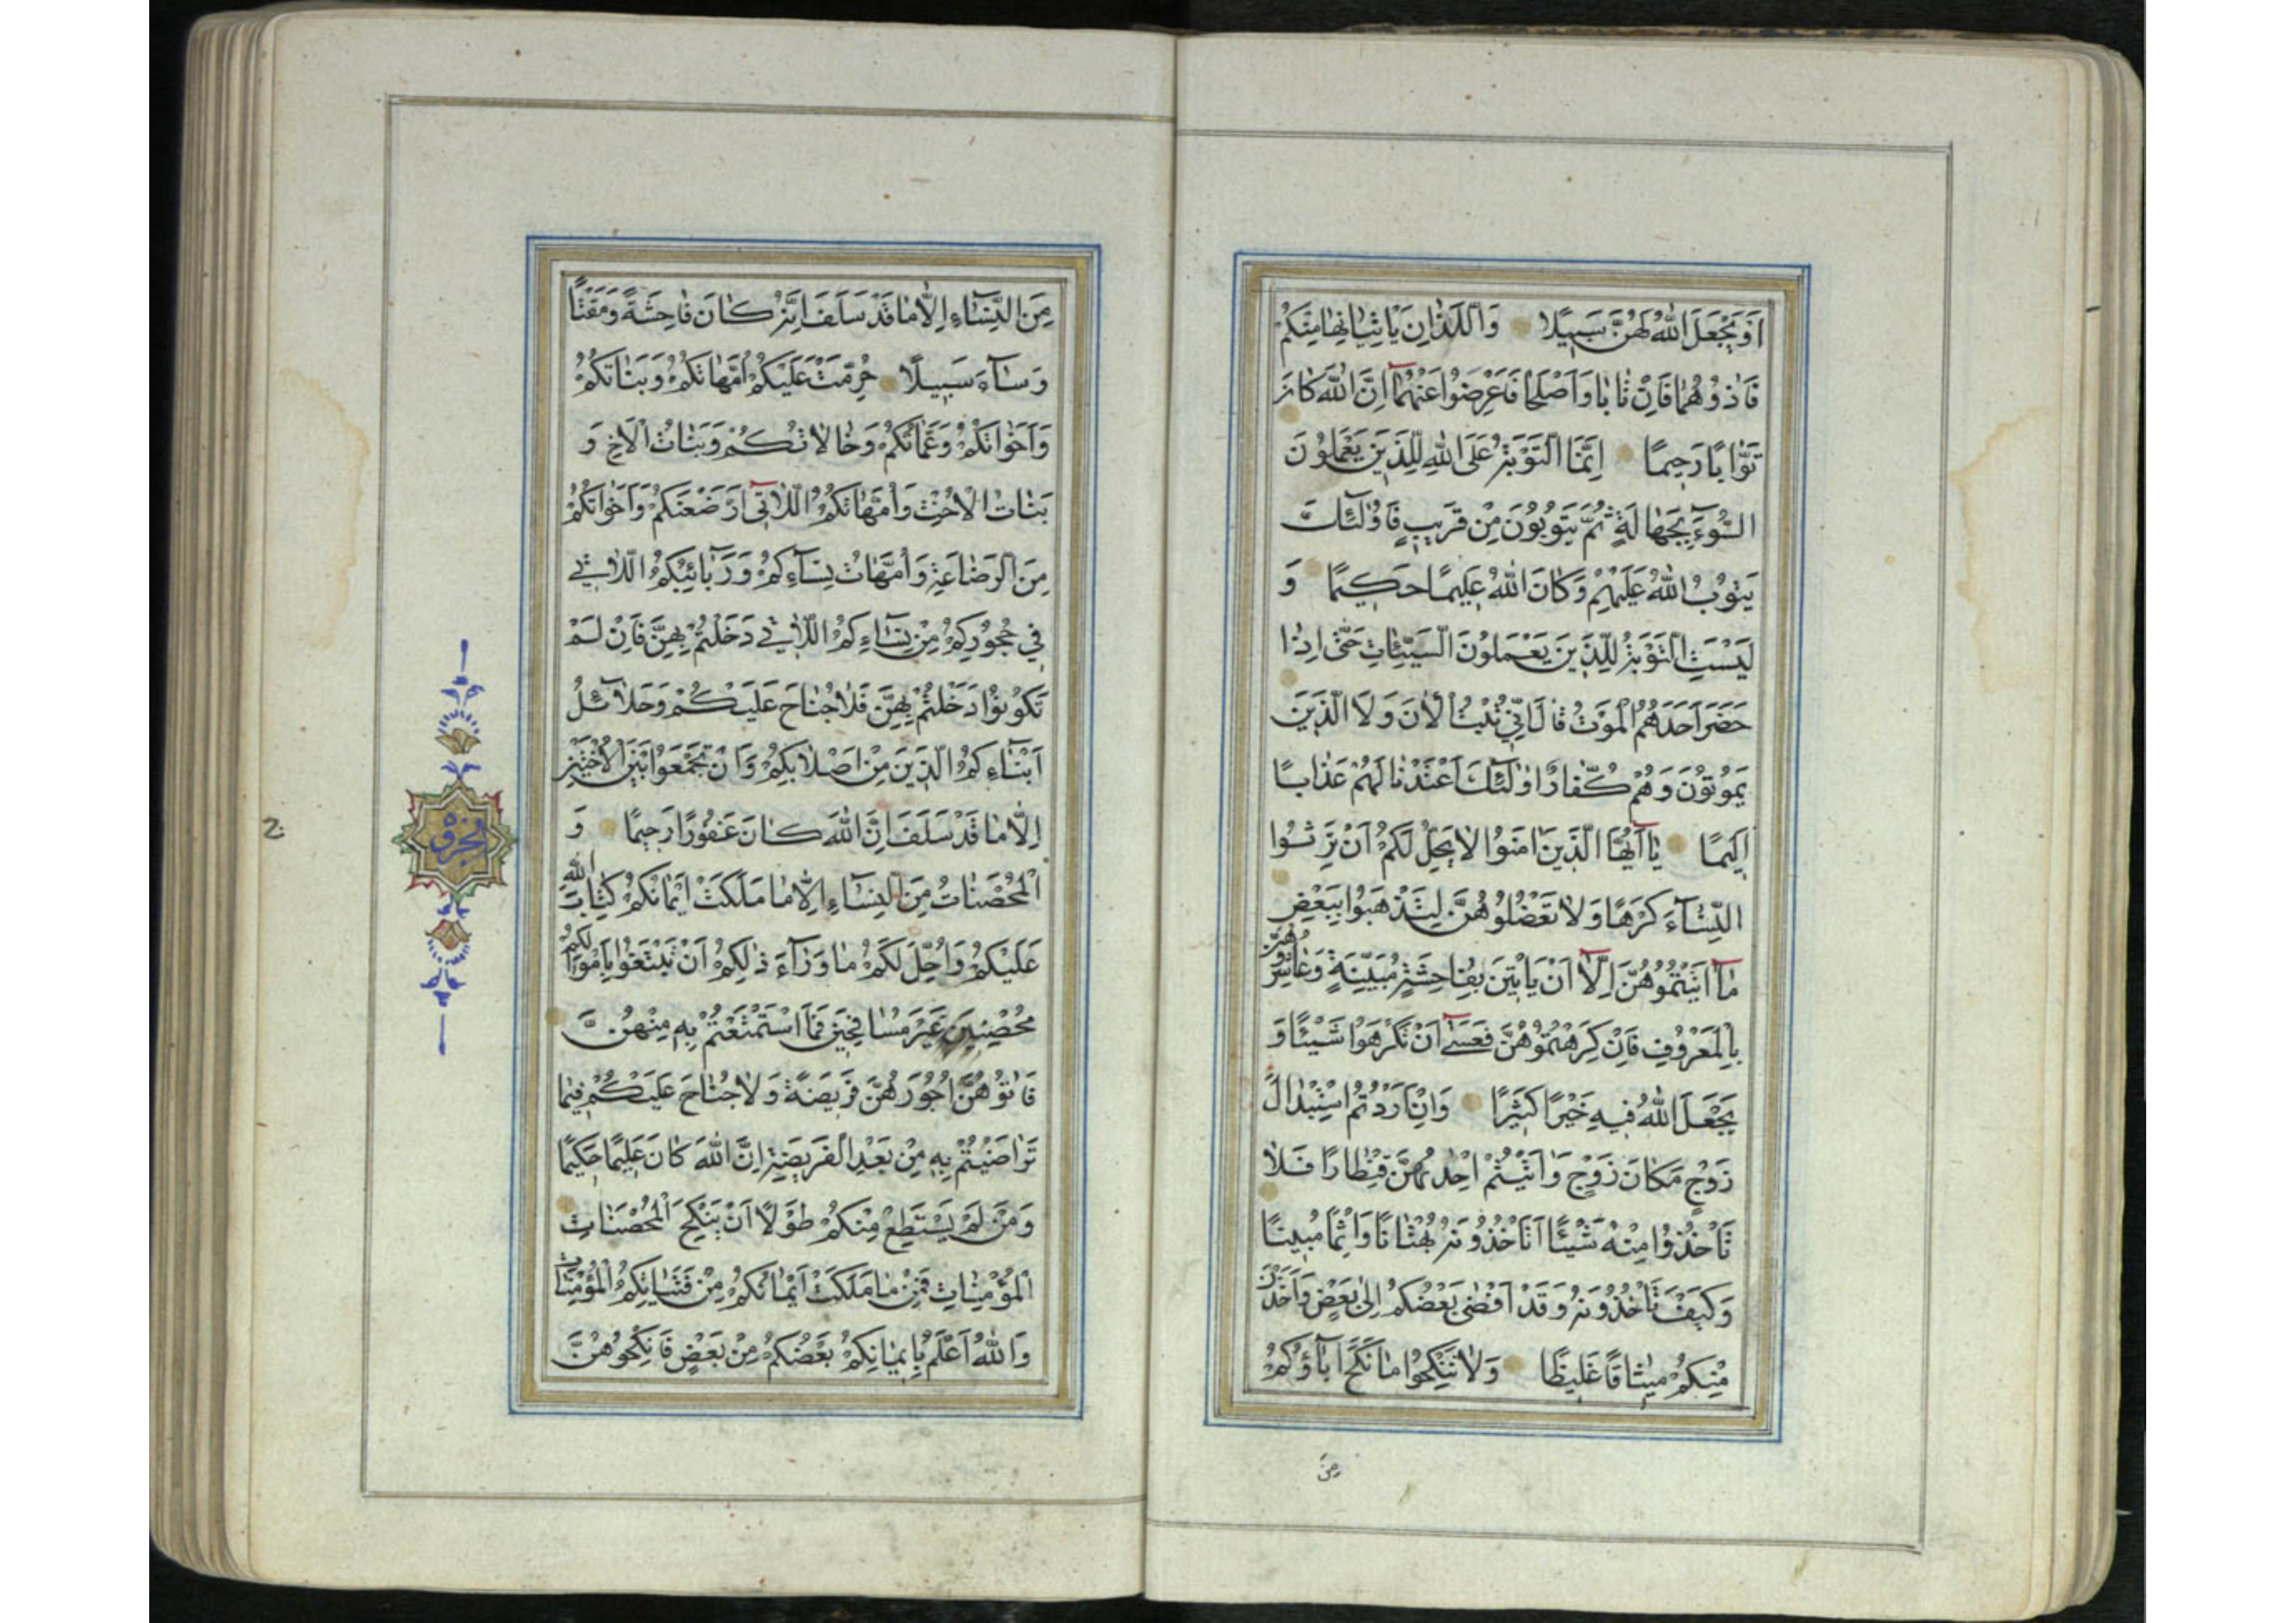 اَوْ يَجْعَلَ اللّٰهُ لَهُنَّ سَبِيلًا وَاَللَّذٰانِ يَأْتِيٰانِهٰا مِنْكُمْ
فَاٰذُوهُمٰا فَاِنْ تٰابٰا وَاَصْلَحٰا فَاَعْرِضُوا عَنْهُمٰٓا اِنَّ اللّٰهَ كٰانَ
تَوّٰابًا رَحِيمًا اِنَّمَا التَّوْبَةُ عَلَى اللّٰهِ لِلَّذِينَ يَعْمَلُونَ
السُّوٓءَ بِجَهٰالَةٍ ثُمَّ يَتُوبُونَ مِنْ قَرِيبٍ فَاُولٰٓئِكَ
يَتُوبُ اللّٰهُ عَلَيْهِمْ وَكٰانَ اللّٰهُ عَلِيمًا حَكِيمًا وَ
لَيْسَتِ التَّوْبَةُ لِلَّذِينَ يَعْمَلُونَ السَّيِّئٰاتِ حَتّٰى اِذٰا
حَضَرَ اَحَدَهُمُ الْمَوْتُ قٰالَ اِنِّي تُبْتُ الْاٰنَ وَلَا الَّذِينَ
يَمُوتُونَ وَهُمْ كُفّٰارٌ اُولٰٓئِكَ اَعْتَدْنٰا لَهُمْ عَذٰابًا
اَلِيمًا يٰٓا اَيُّهَا الَّذِينَ اٰمَنُوا لٰا يَحِلُّ لَكُمْ اَنْ تَرِثُوا
النِّسٰٓاءَ كَرْهًا وَلٰا تَعْضُلُوهُنَّ لِتَذْهَبُوا بِبَعْضِ
مٰٓا اٰتَيْتُمُوهُنَّ اِلّٰٓا اَنْ يَأْتِينَ بِفٰاحِشَةٍ مُبَيِّنَةٍ وَعٰاشِرُوهُنَّ
بِالْمَعْرُوفِ فَاِنْ كَرِهْتُمُوهُنَّ فَعَسٰٓى اَنْ تَكْرَهُوا شَيْئًا وَ
يَجْعَلَ اللّٰهُ فِيهِ خَيْرًا كَثِيرًا وَاِنْ اَرَدْتُمُ اسْتِبْدٰالَ
زَوْجٍ مَكٰانَ زَوْجٍ وَاٰتَيْتُمْ اِحْدٰيهُنَّ قِنْطٰارًا فَلٰا
تَأْخُذُوا مِنْهُ شَيْئًا اَتَأْخُذُونَهُ بُهْتٰانًا وَاِثْمًا مُبِينًا
وَكَيْفَ تَأْخُذُونَهُ وَقَدْ اَفْضٰى بَعْضُكُمْ اِلٰى بَعْضٍ وَاَخَذْنَ
مِنْكُمْ مِيثٰاقًا غَلِيظًا وَلٰا تَنْكِحُوا مٰا نَكَحَ اٰبٰٓاؤُكُمْ
مِنَ
مِنَ النِّسٰٓاءِ اِلّٰا مٰا قَدْ سَلَفَ اِنَّهُ كٰانَ فٰاحِشَةً وَمَقْتًا
وَسٰٓاءَ سَبِيلًا حُرِّمَتْ عَلَيْكُمْ اُمَّهٰاتُكُمْ وَبَنٰاتُكُمْ
وَاَخَوٰاتُكُمْ وَعَمّٰاتُكُمْ وَخٰالٰاتُكُمْ وَبَنٰاتُ الْاَخِ وَ
بَنٰاتُ الْاُخْتِ وَاُمَّهٰاتُكُمُ اللّٰاتِٓى اَرْضَعْنَكُمْ وَاَخَوٰاتُكُمْ
مِنَ الرَّضٰاعَةِ وَاُمَّهٰاتُ نِسٰٓاءِكُمْ وَرَبٰٓائِبُكُمُ اللّٰاتِي
فِي حُجُورِكُمْ مِنْ نِسٰٓاءِكُمُ اللّٰاتِي دَخَلْتُمْ بِهِنَّ فَاِنْ لَمْ
تَكُونُوا دَخَلْتُمْ بِهِنَّ فَلٰا جُنٰاحَ عَلَيْكُمْ وَحَلٰٓائِلُ
اَبْنٰٓاءِكُمُ الَّذِينَ مِنْ اَصْلٰابِكُمْ وَاَنْ تَجْمَعُوا بَيْنَ الْاُخْتَيْنِ
اِلّٰا مٰا قَدْ سَلَفَ اِنَّ اللّٰهَ كٰانَ غَفُورًا رَحِيمًا وَ
الْمُحْصَنٰاتُ مِنَ النِّسٰٓاءِ اِلّٰا مٰا مَلَكَتْ اَيْمٰانُكُمْ كِتٰابَ اللّٰهِ
عَلَيْكُمْ وَاُحِلَّ لَكُمْ مٰا وَرٰٓاءَ ذٰلِكُمْ اَنْ تَبْتَغُوا بِاَمْوٰالِكُمْ
مُحْصِنِينَ غَيْرَ مُسٰافِحِينَ فَمَا اسْتَمْتَعْتُمْ بِهِ مِنْهُنَّ
فَاٰتُوهُنَّ اُجُورَهُنَّ فَرِيضَةً وَلٰا جُنٰاحَ عَلَيْكُمْ فِيمٰا
تَرٰاضَيْتُمْ بِهِ مِنْ بَعْدِ الْفَرِيضَةِ اِنَّ اللّٰهَ كٰانَ عَلِيمًا حَكِيمًا
وَمَنْ لَمْ يَسْتَطِعْ مِنْكُمْ طَوْلًا اَنْ يَنْكِحَ الْمُحْصَنٰاتِ
الْمُؤْمِنٰاتِ فَمِنْ مٰا مَلَكَتْ اَيْمٰانُكُمْ مِنْ فَتَيٰاتِكُمُ الْمُؤْمِنٰاتِ
وَاللّٰهُ اَعْلَمُ بِاِيمٰانِكُمْ بَعْضُكُمْ مِنْ بَعْضٍ فَانْكِحُوهُنَّ